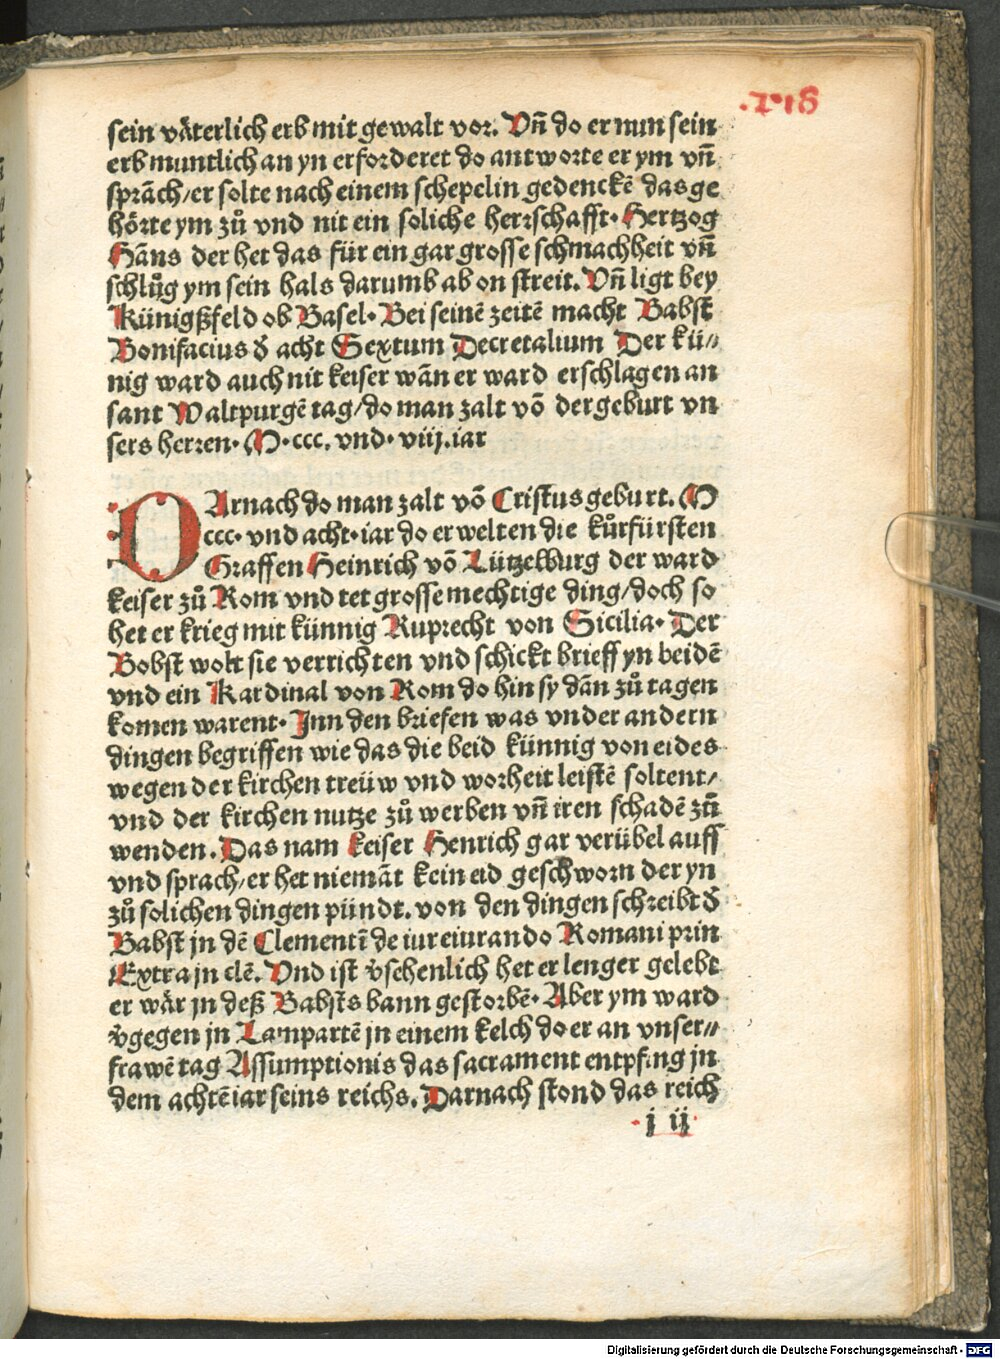 .1718
sein väterlich erb mit gewalt vor. Vñ do er nun sein
erb muntlich an yn erforderet do antworte er ym vñ
sprãch/er solte nach einem schepelin gedenckẽ das ge
hörte ym zů vnd nit ein soliche herrschafft· Hertzog
Hãns der het das für ein gar grosse schmachheit vñ
schlůg ym sein hals darumb ab on streit. Vñ ligt bey
Künigßfeld ob Basel· Bei seinẽ zeitẽ macht Babst
Bonifacius ď acht Sextum Decretalium Der kü//
nig ward auch nit keiser wãn er ward erschlagen an
sant Waltpurgẽ tag/do man zalt võ der geburt vn
sers herren· M·ccc. vnd· viij.iar
DArnach do man zalt võ Cristus geburt. M
ccc· vnd acht·iar do er welten die kůrfürsten
Graffen Heinrich võ Lützelburg der ward
keiser zů Rom vnd tet grosse mechtige ding/doch so
het er krieg mit künnig Ruprecht von Sicilia· Der
Bobst wolt sie verrichten vnd schickt brieff yn beidẽ
vnd ein Kardinal von Rom do hin sy dãn zů tagen
komen warent· Inn den briefen was vnder andern
dingen begriffen wie das die beid künnig von eides
wegen der kirchen treüw vnd worheit leistẽ soltent/
vnd der kirchen nutze zů werben vñ iren schadẽ zů
wenden. Das nam keiser Henrich gar verübel auff
vnd sprach/er het niemãt kein eid geschworn der yn
zů solichen dingen pündt. von den dingen schreibt ď
Babst jn dẽ Clementĩ de iureiurando Romani prin
Extra jn clẽ. Vnd ist v̉sehenlich het er lenger gelebt
er wär jn deß Babsts bann gestorbẽ· Aber ym ward
v̉gegen jn Lampartẽ jn einem kelch do er an vnser//
frawẽ tag Assumptionis das sacrament entpfing jn
dem achtẽ iar seins reichs. Darnach stond das reich
j ij
Digitalisierung gefördert durch die Deutsche Forschungsgemeinschaft - DFG